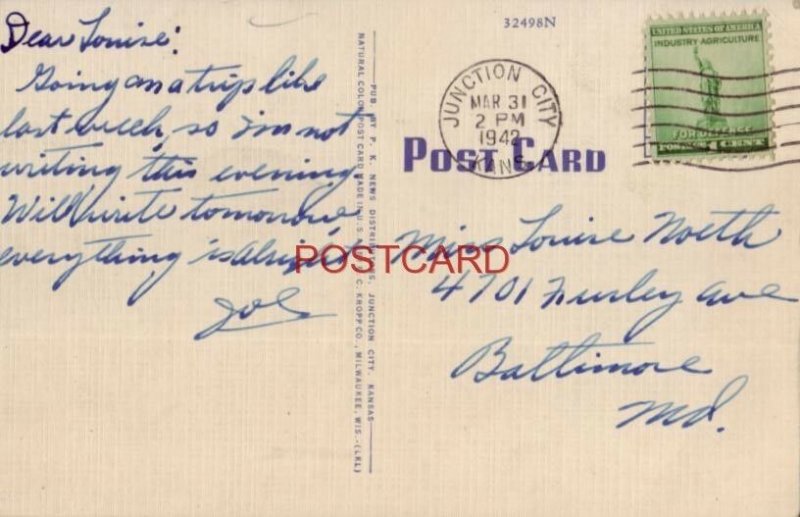 Dear Louise:
Going on a trip like
last week, so i'm not
writing this evening.
Will write tomorrow
everything is alright
Joe
PUB. BY P. K. NEWS DISTRIBUTORS, JUNCTION CITY, KANSAS
NATURAL COLOR POST CARD MADE IN U.S. C. KROPP CO., MILWAUKEE, WIS.-(LKL)
32498N
JUNCTION CITY
MAR 31
2 PM
1942
KANS.
UNITED STATES OF AMERICA
INDUSTRY AGRICULTURE
FOR DEFENSE
POSTAGE 1 CENT
POST CARD
POSTCARD
Miss Louise Noeth
4701 Furley ave
Baltimore
Md.